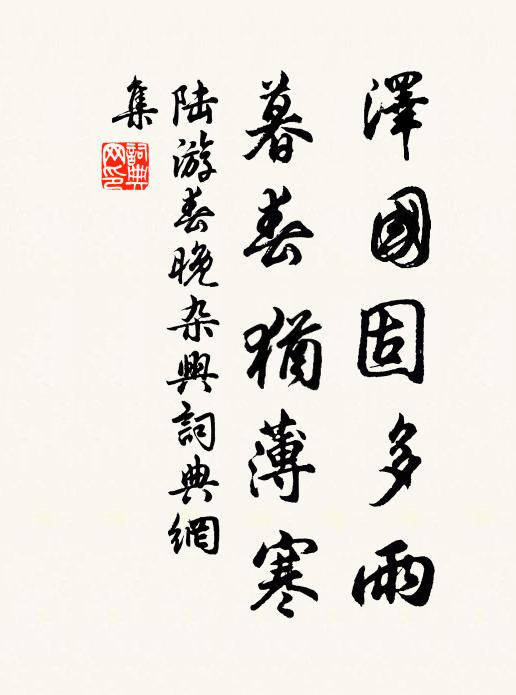 澤國固多雨
暮春猶薄寒
陸游春晚杂興詞典網
集
詞典
网印